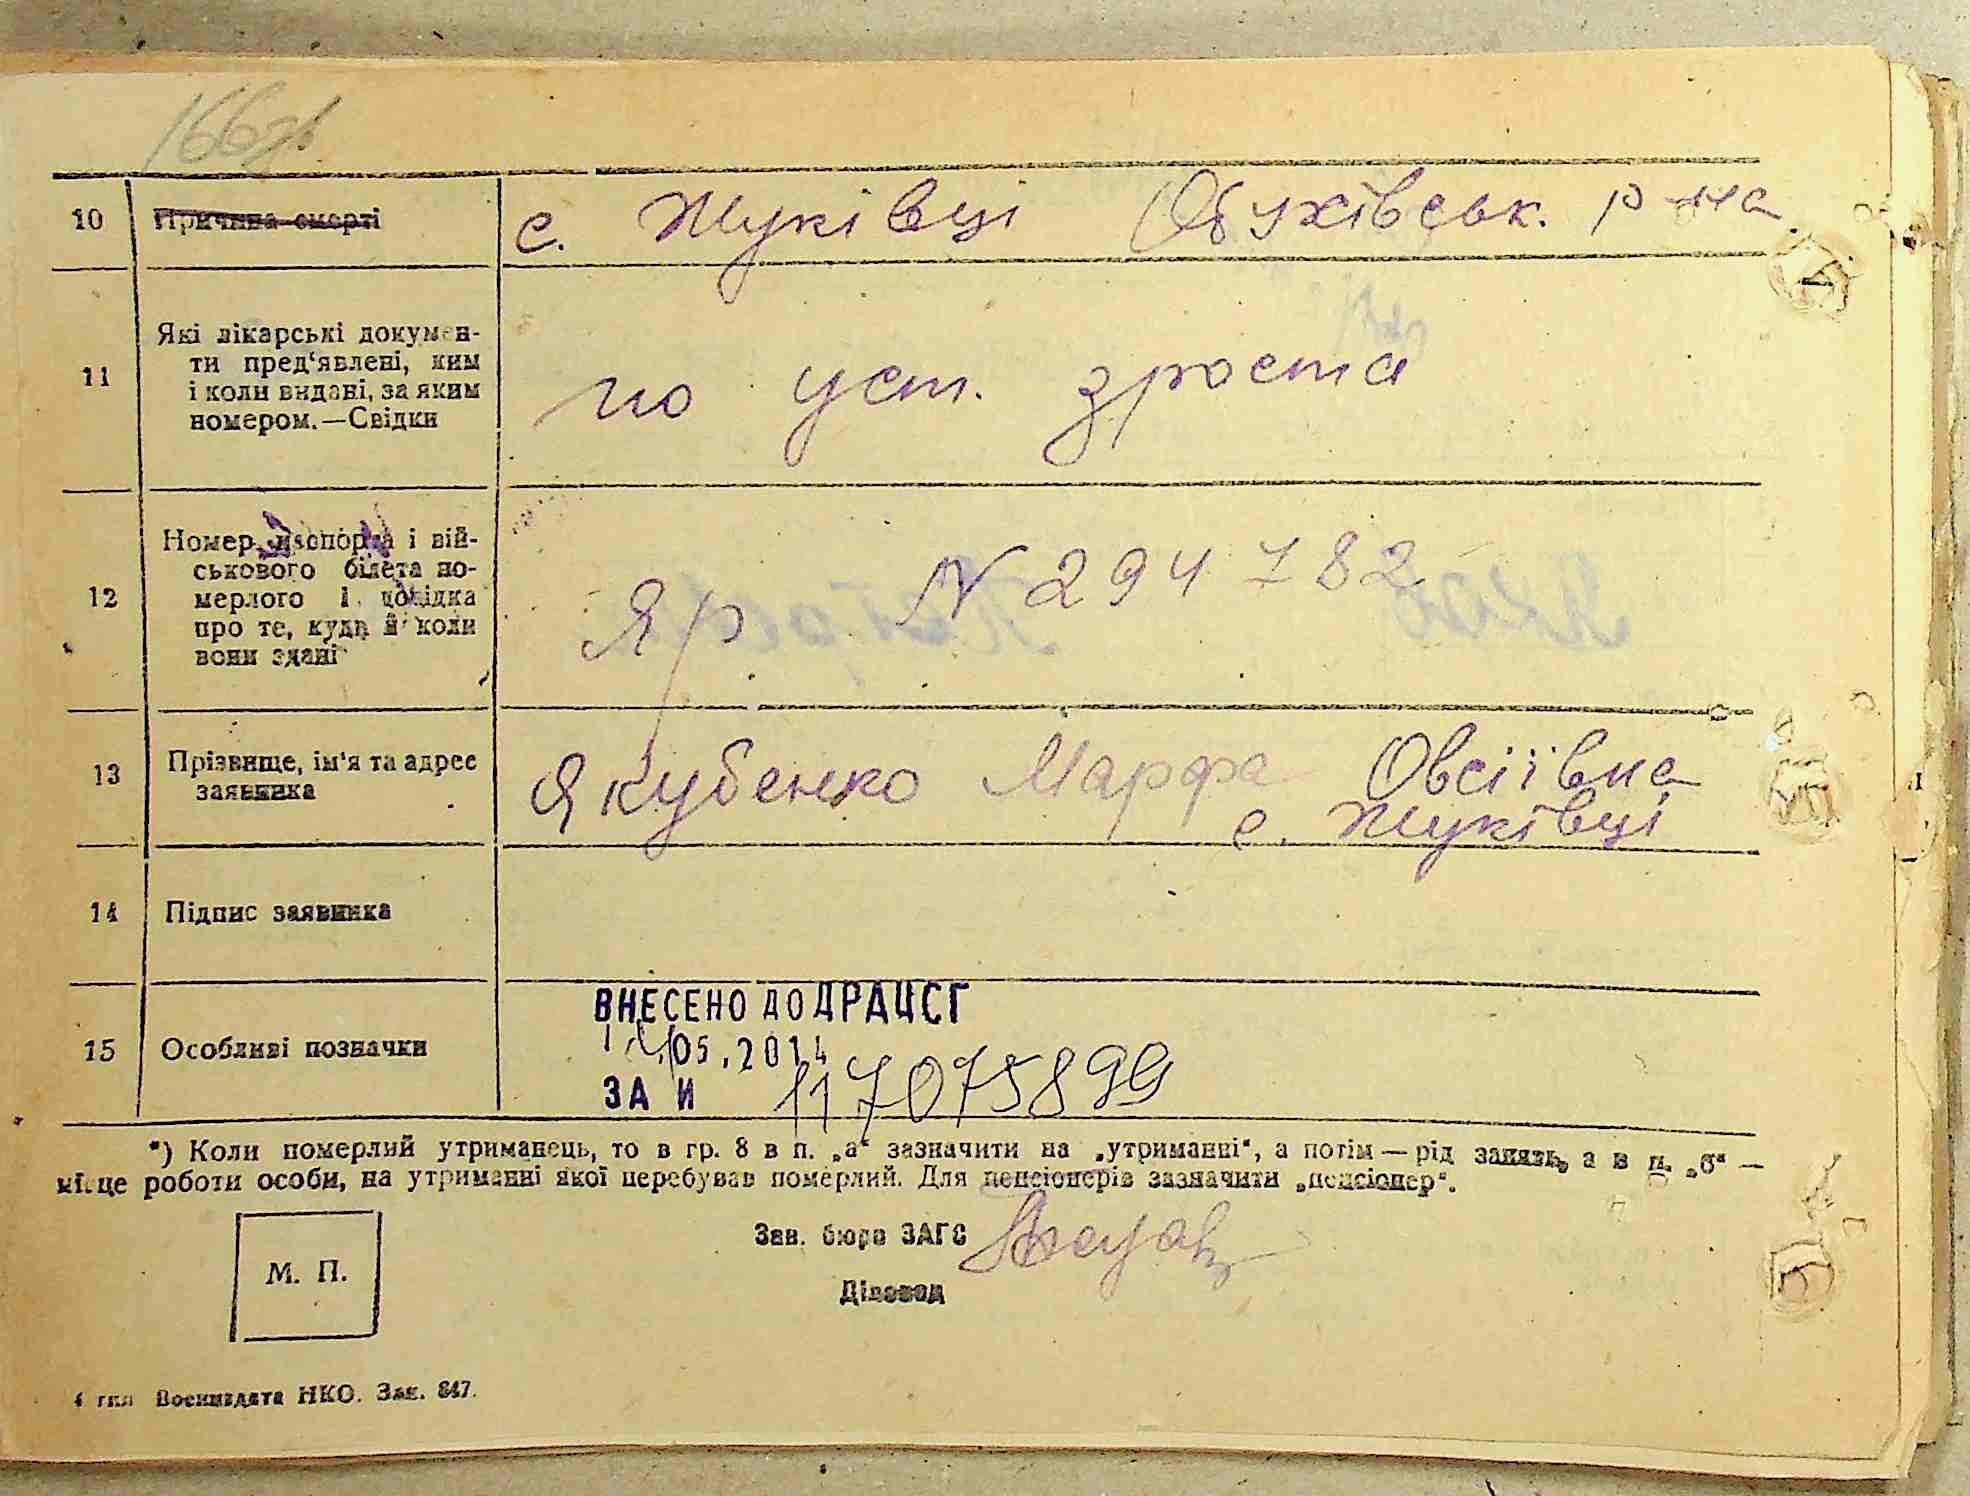 166зв
10 Причина смерті с. Жуківці Обухівськ. р-на
11 Які лікарські докумен-
ти пред‘явлені, ким
і коли видані, за яким
номером.—Свідки
по уст. зроста
12 Номер паспорта і вій-
ськового білета по-
мерлого і довідка
про те, куди й коли
вони здані
Яр N 294782
13 Прізвище, ім'я та адрес
заявника
Якубенко Марфа Овсіївна
с. Жуківці
14 Підпис заявника
15 Особливі позначки
ВНЕСЕНО ДО ДРАЦСГ
05.2014
ЗА И 117075899
*) Коли померлий утриманець, то в гр. 8 в п. „а“ зазначити на „утриманні“, а потім — рід занять, а в п. „б“ —
місце роботи особи, на утриманні якої перебував померлий. Для пенсіонерів зазначити „пенсіонер“.
Зав. бюро ЗАГС
М. П.
Діловод
4 тип Воениздата НКО. Зак. 847.